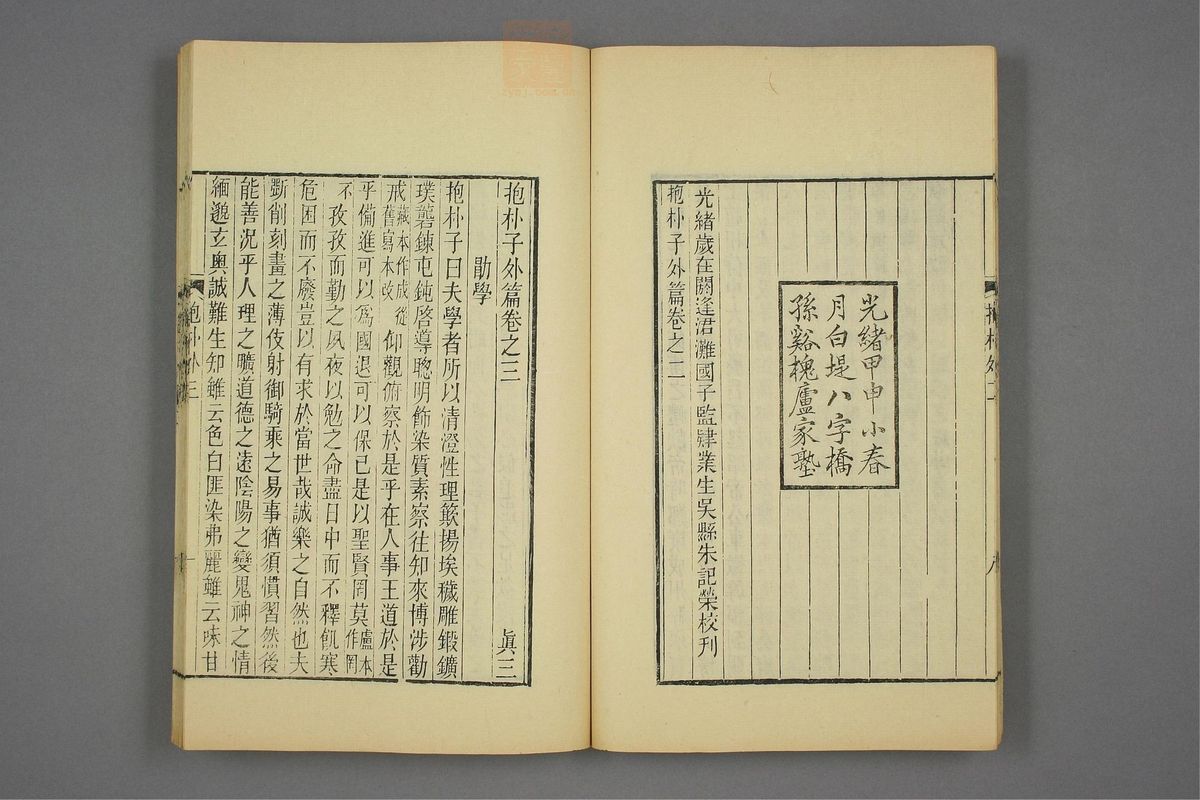 光緒甲申小春
月白堤八字橋
孫谿槐廬家塾
光緒歲在閼逢涒灘國子監肄業生吳縣朱記榮校刊
抱朴子外篇卷之二
抱朴子外篇卷之三 真三
勖學
抱朴子曰夫學者所以清澄性理簸揚埃穢雕鍛鑛
璞礱鍊屯鈍啓導聰明飾染質素察往知來博涉勸
戒藏本作成從舊寫本改仰觀俯察於是乎在人事王道於是
乎備進可以爲國退可以保己是以聖賢罔莫盧本作罔
不孜孜而勤之夙夜以勉之命盡日中而不釋飢寒
危困而不廢豈以有求於當世哉誠樂之自然也夫
斲削刻畫之薄伎射御騎乘之易事猶須慣習然後
能善況乎人理之曠道德之遠陰陽之變鬼神之情
緬邈玄奧誠難生知雖云色白匪染弗麗雖云味甘